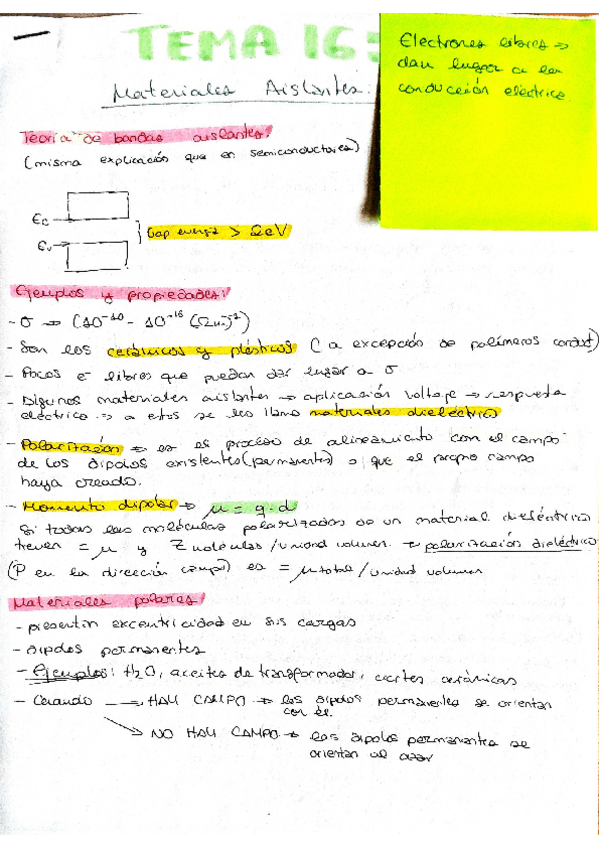 TEMA 16:
Materiales Aislantes.
Electrones libres ⇒
dan lugar a la
conducción eléctrica
Teoría de bandas aislantes:
(misma explicación que en semiconductores)
Ec
Ev
Gap energía > 2eV
Ejemplos y propiedades:
- σ ⇒ (10⁻¹⁰ - 10⁻¹⁶ (Ωm)⁻¹)
- Son los cerámicos y plásticos (a excepción de polímeros conduct)
- Pocos e⁻ libres que puedan dar lugar a σ
- Algunos materiales aislantes → aplicación voltaje → respuesta
eléctrica ⇒ a estos se les llama materiales dieléctrico
- Polarización ⇒ es el proceso de alineamiento con el campo
de los dipolos existentes (permanentes) o que el propio campo
haya creado.
- Momento dipolar ⇒ μ = q·d
Si todas las moléculas polarizadas de un material dieléctrico
tienen = μ y Z moléculas/unidad volumen. ⇒ polarización dieléctrica
(P en la dirección campo) es = μ total / unidad volumen
Materiales polares:
- presentan excentricidad en sus cargas
- dipolos permanentes
- Ejemplos: H₂O, aceites de transformador, ciertos cerámicos
- Cuando → HAY CAMPO ⇒ los dipolos permanentes se orientan
con él.
→ NO HAY CAMPO ⇒ los dipolos permanentes se
orientan al azar